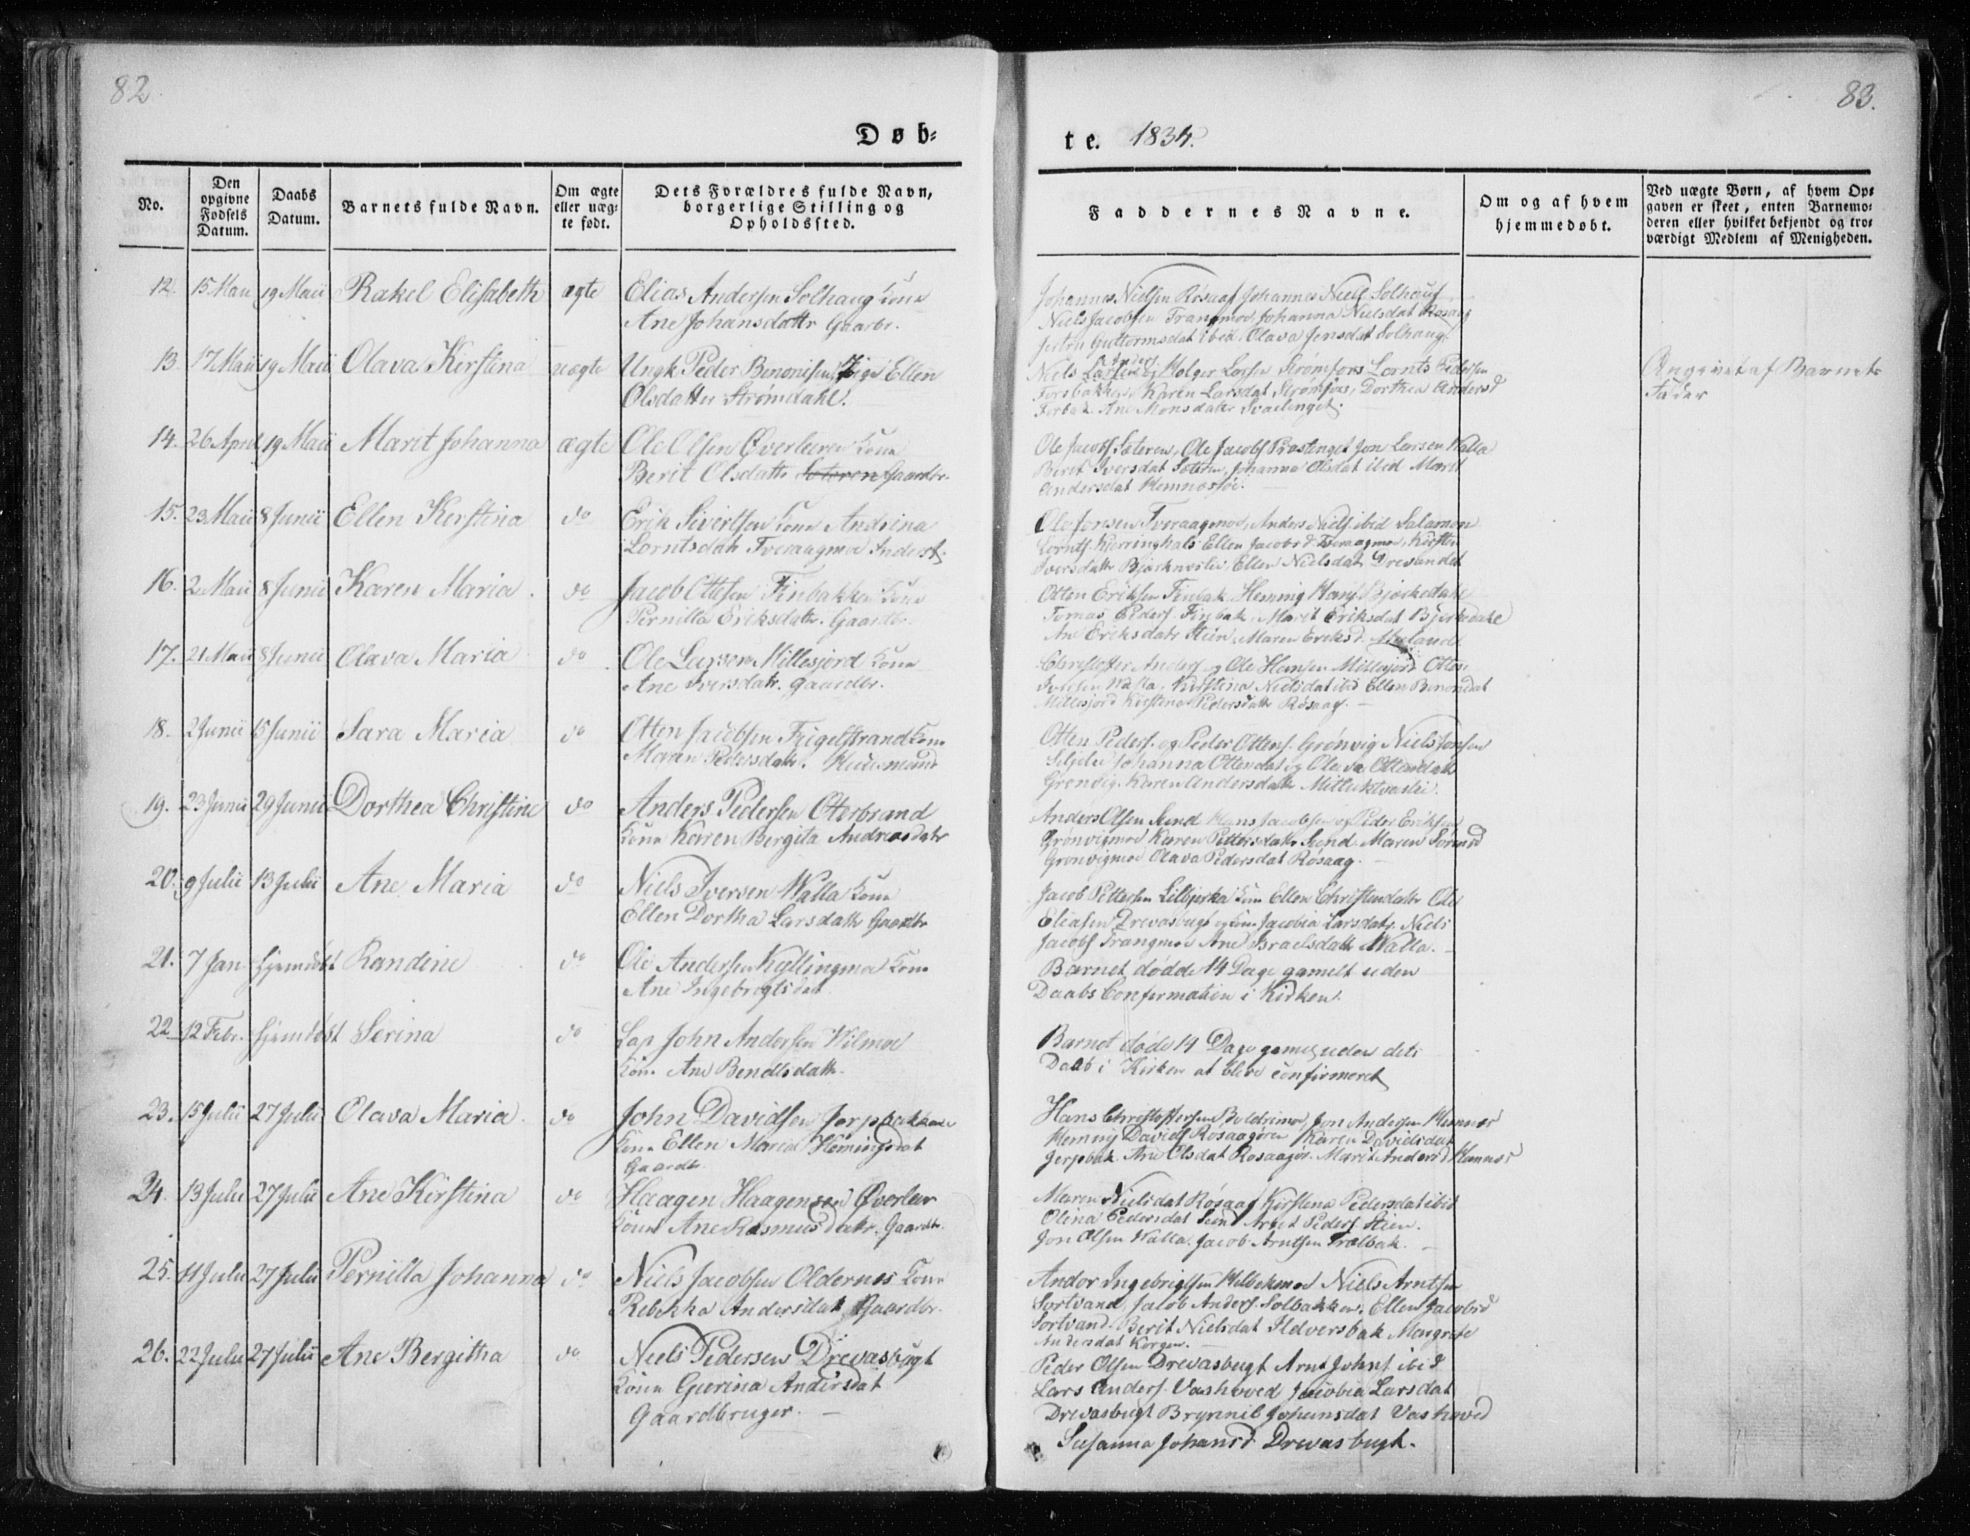 82
83.
Døb-
te. 1834.
No.
Den opgivne Fødsels Datum.
Daabs Datum.
Barnets fulde Navn.
Om ægte eller uæg-te født.
Dets Forældres fulde Navn, borgerlige Stilling og Opholdssted.
Faddernes Navne.
Om og af hvem hjemmedøbt.
Ved uægte Børn, af hvem Op-gaven er skeet, enten Barnemo-deren eller hvilket bekjendt og tro-værdigt Medlem af Menigheden.
12. 15 Maii 19 Maii Rakel Elisabeth ægte Elias Andersen Solhaug Kone
Ane Johansdattr Gaardbr.
Johannes Nielsen Røsaa Johannes Niels Solhaug
Niels Jacobsen Trangmoe Johanna Nielsdat Røsaa
Guttormsdat ibid. Olava Jensdat Solhaug
13. 17 Maii 19 Maii Olava Kirstina uægte Ungk Peder Benonisen Pige Ellen
Olsdatter Strømdahl.
Niels Larsen Anders. Holger Larsen Strømfors Lornts Pedersen
Forsbakken, Karen Larsdat Strømfors, Dorthea Andersd
Forbak. Ane Monsdatter Svaelenget.
Angivet af Barnets
Fader
14. 26 April 19 Maii Marit Johanna ægte Ole Olsen Øverleeren Kone
Berit Olsdattr Gaardbr.
Ole Jacobs. Sæteren, Ole Jacobs Jon Larsen Walla
Berit Iversdat Sæteren, Johanna Olsdat ibid Marit
Andersdat Hemnesøe.
15. 23 Maii 8 Junii Ellen Kirstina do Erik Sivertsen Kone Andrina
Lorntsdatr Tveraagmoe Inderst.
Ole Jonsen Tveraagmoe, Anders Niels. ibid Salamon
Lornts. Kjerringhals Ellen Jacobsd Tveraagmoe, Kirsten
Iversdattr Ellen Nielsdat Drevandet
16. 2 Maii 8 Junii Karen Maria do Jacob Ottesen Finbakken Kone
Pernilla Eriksdatr. Gaardbr.
Otten Eriksen Finbak. Heming Hans. Bjerkedale
Tomas Peders. Finbak, Marit Eriksdat Bjerkedale
Ane Eriksdatr Stien, Maren Eriksd.
17. 21 Maii 8 Junii Olava Maria do Ole Larsen Millesjord Kone
Ane Iversdatr. Gaardbr.
Christoffer Anders. og Ole Hansen Millesjord Otten
Iversen Walla. Kirstina Nielsdat ibid Ellen Benondat
Millesjord Kirstina Pedersdattr Røsaa. —
18. 2 Junii 15 Junii Sara Maria do Otten Jacobsen Kone
Maren Pedersdatr. Huusmand
Otten Peders. og Peder Ottens. Grønvig Niels Jonsen
Johanna Ottendat og Oleva Ottendatr
Grønvig, Karen Andersdatr
19. 23 Junii 29 Junii Dorthea Christine do Anders Pedersen Oterbrand
Kone Karren Bergita Andreasdatr
Anders Olsen Sund Hans Jacobsen og Peder Eriksen
Grønvigmoe Karen Pettersdatr Sund. Maren Sørensd
Grønvigmoe Olava Pedersdat Røsaag. —
20. 9 Julii 13 Julii Ane Maria do Niels Iversen Walla Kone
Ellen Dortha Larsdattr Gaardbr
Jacob Pettersen Kone Ellen Christendattr Ole
Eliasen Drevasbugt og Kone Jacobia Larsdatr. Niels
Jacobs Trangmoe Ane Israelsdattr Walla. —
21. 7 Jan hjemdøbt Randine do Ole Andersen Kyllingmoe Kone
Ane Ingebrogtsdat
Barnet dødde 14 Dage gamelt uden
Daabs Confermation i Kirken.
22. 12 Febr. hjemdøbt Serina do Lap John Andersen Vilmoe
Kone Ane Bendtsdattr.
Barnet døde 14 Dage gamel uden dets
Daab i Kirken at bleve confirmeret
23. 15 Julii 27 Julii Olava Maria do John Davidsen Jerpbakken
Kone Ellen Maria Hemingsdat
Gaardbr
Hans Christoffersen Boldermoe Jon Andersen Hemnes
Heming Davids Røsaagøren Karen Davidsdat
Jerpbak. Ane Olsdat Røsaagør. Marit Andersd Hemnes
24. 13 Julii 27 Julii Ane Kirstina do Haagen Haagensen Øverleir
Kone Ane Rasmusdatr. Gaardbr.
Maren Nielsdat Røsaa Kirstena Pedersdat ibid
Olina Pedersdat Sund Arnt Peders. Stien.
Jon Olsen Walla. Jacob Arntsen Trælbak. —
25. 11 Julii 27 Julii Pernilla Johanna do Niels Jacobsen Oldernes Kone
Rebekka Andersdatr Gaardbr.
Andor Ingebrigtsen Niels Arntsen
Sortvand, Jacob Anders. Solbakken. Ellen Jacobsd
Sortvand. Berit Nielsdat Ildversbak Margrete
Andersdat Korgen.
26. 22 Julii 27 Julii Ane Bergitha do Niels Pedersen Drevasbugt
Kone Gurina Andersdat
Gaardbruger. —
Peder Olsen Drevasbugt Arnt Johns ibid
Lars Anders. Vashoved Jacobia Larsdat
Drevasbugt Brynnil Johansdat Vashoved
Susanna Johansd Drevasbugt.